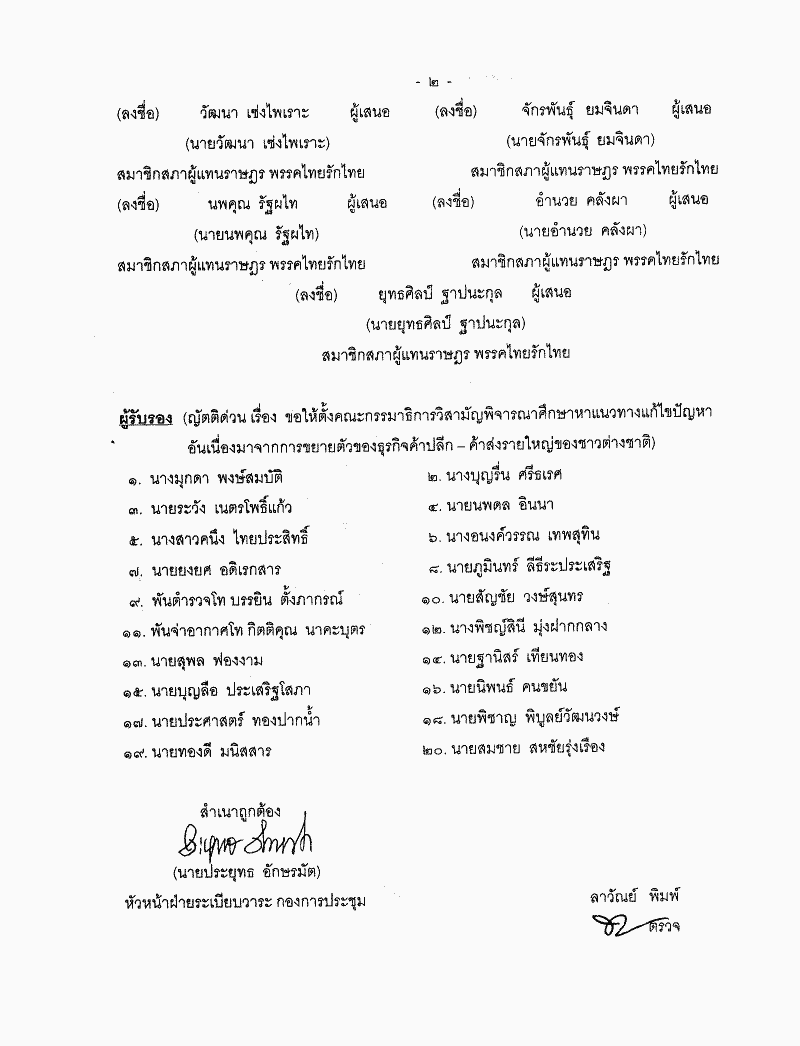 - ๒ -
(ลงชื่อ) วัฒนา เซ่งไพเราะ ผู้เสนอ (ลงชื่อ) จักรพันธุ์ ยมจินดา ผู้เสนอ
(นายวัฒนา เซ่งไพเราะ) (นายจักรพันธุ์ ยมจินดา)
สมาชิกสภาผู้แทนราษฎร พรรคไทยรักไทย สมาชิกสภาผู้แทนราษฎร พรรคไทยรักไทย
(ลงชื่อ) นพคุณ รัฐผไท ผู้เสนอ (ลงชื่อ) อำนวย คลังผา ผู้เสนอ
(นายนพคุณ รัฐผไท) (นายอำนวย คลังผา)
สมาชิกสภาผู้แทนราษฎร พรรคไทยรักไทย สมาชิกสภาผู้แทนราษฎร พรรคไทยรักไทย
(ลงชื่อ) ยุทธศิลป์ ฐาปนะกุล ผู้เสนอ
(นายยุทธศิลป์ ฐาปนะกุล)
สมาชิกสภาผู้แทนราษฎร พรรคไทยรักไทย
ผู้รับรอง (ญัตติด่วน เรื่อง ขอให้ตั้งคณะกรรมาธิการวิสามัญพิจารณาศึกษาหาแนวทางแก้ไขปัญหา
อันเนื่องมาจากการขยายตัวของธุรกิจค้าปลีก – ค้าส่งรายใหญ่ของชาวต่างชาติ)
๑. นางมุกดา พงษ์สมบัติ ๒. นางบุญรื่น ศรีธเรศ
๓. นายระวัง เนตรโพธิ์แก้ว ๔. นายนพดล อินนา
๕. นางสาวคนึง ไทยประสิทธิ์ ๖. นางอนงค์วรรณ เทพสุทิน
๗. นายยงยศ อดิเรกสาร ๘. นายภูมินทร์ ลีธีระประเสริฐ
๙. พันตำรวจโท บรรยิน ตั้งภากรณ์ ๑๐. นายสัญชัย วงษ์สุนทร
๑๑. พันจ่าอากาศโท กิตติคุณ นาคะบุตร ๑๒. นางพิชญ์สินี มุ่งฝากกลาง
๑๓. นายสุพล ฟองงาม ๑๔. นายฐานิสร์ เทียนทอง
๑๕. นายบุญลือ ประเสริฐโสภา ๑๖. นายนิพนธ์ คนขยัน
๑๗. นายประศาสตร์ ทองปากน้ำ ๑๘. นายพิชาญ พิบูลย์วัฒนวงษ์
๑๙. นายทองดี มนิสสาร ๒๐. นายสมชาย สหชัยรุ่งเรือง
สำเนาถูกต้อง
(นายประยุทธ อักษรมัต)
หัวหน้าฝ่ายระเบียบวาระ กองการประชุม
ลาวัณย์ พิมพ์
ตรวจ